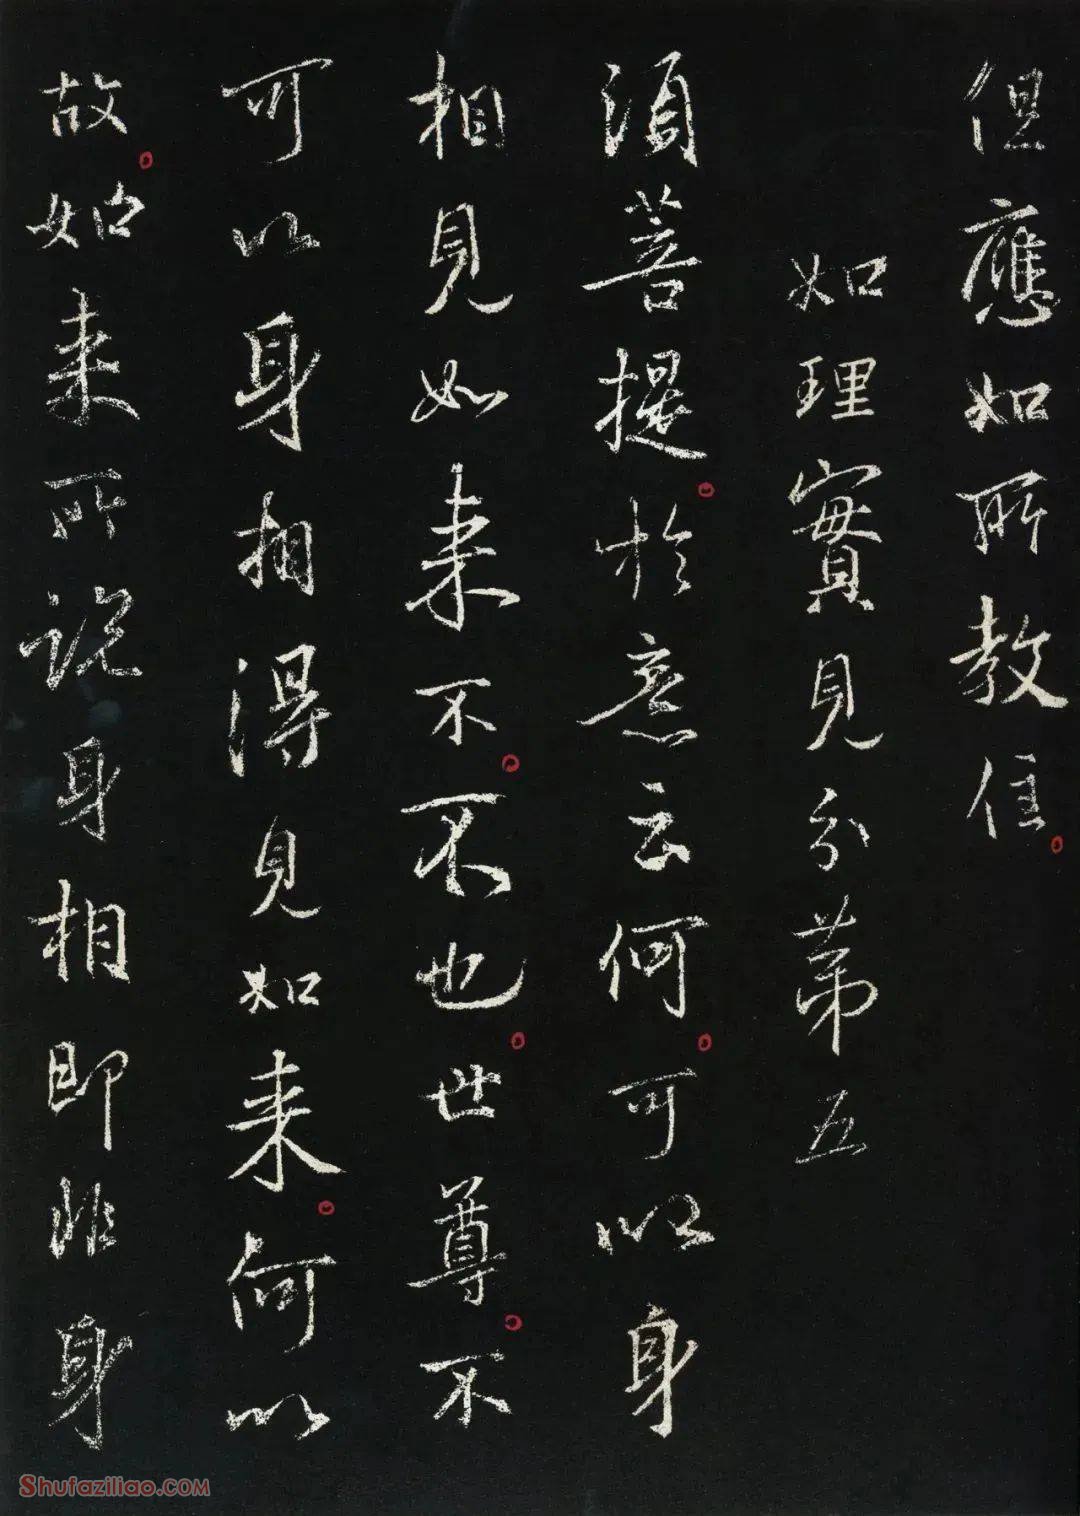 但應如所教住。
如理實見分第五
須菩提。於意云何。可以身
相見如来不。不也。世尊。不
可以身相得見如来。何以
故。如来所說身相即非身
Shufaziliao.COM